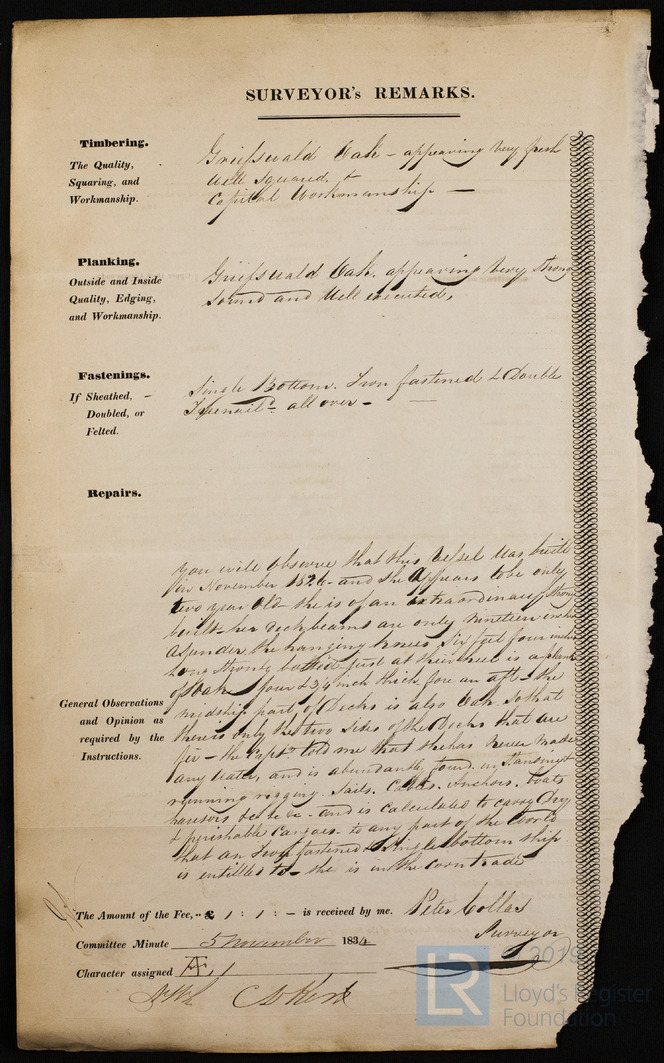 SURVEYOR's REMARKS.
Timbering.
The Quality,
Squaring, and
Workmanship.
Greifswald Oak – appearing very fresh
Well Squared, &
Capital Workmanship —
Planking.
Outside and Inside
Quality, Edging,
and Workmanship.
Greifswald Oak, appearing very strong
Sound and Well executed,
Fastenings.
If Sheathed, –
Doubled, or
Felted.
Single Bottom. Iron fastened & Double
Treenail'd all over –
Repairs.
General Observations
and Opinion as
required by the
Instructions.
You will observe that this Vessel was built
in November 1826 – and she appears to be only
two year old – she is of an extraordinary strong
built – her deck beams are only nineteen inches
asunder the hanging knees Six feet four inches
long strongly bolted just at their heel is a plank
of Oak four & 3/4 inch thick fore an aft – & the
midship part of Decks is also Oak. So that
there is only the two sides of the Decks that are
fir – the Capt. told me that she has never made
any water, and is abundantly found in standing &
running rigging. Sails. Cables. Anchors. boats
hausers &c &c &c – and is calculated to carry dry
& perishable Cargoes – to any part of the World
that an Iron fastened & Single bottom ship
is entitled to – she is in the corn trade
The Amount of the Fee, .. £ 1 : 1 : – is received by me. Peter Collas
Surveyor
Committee Minute 5 November 1834
Character assigned Æ 1
2019
LR
Lloyd's Register
Foundation